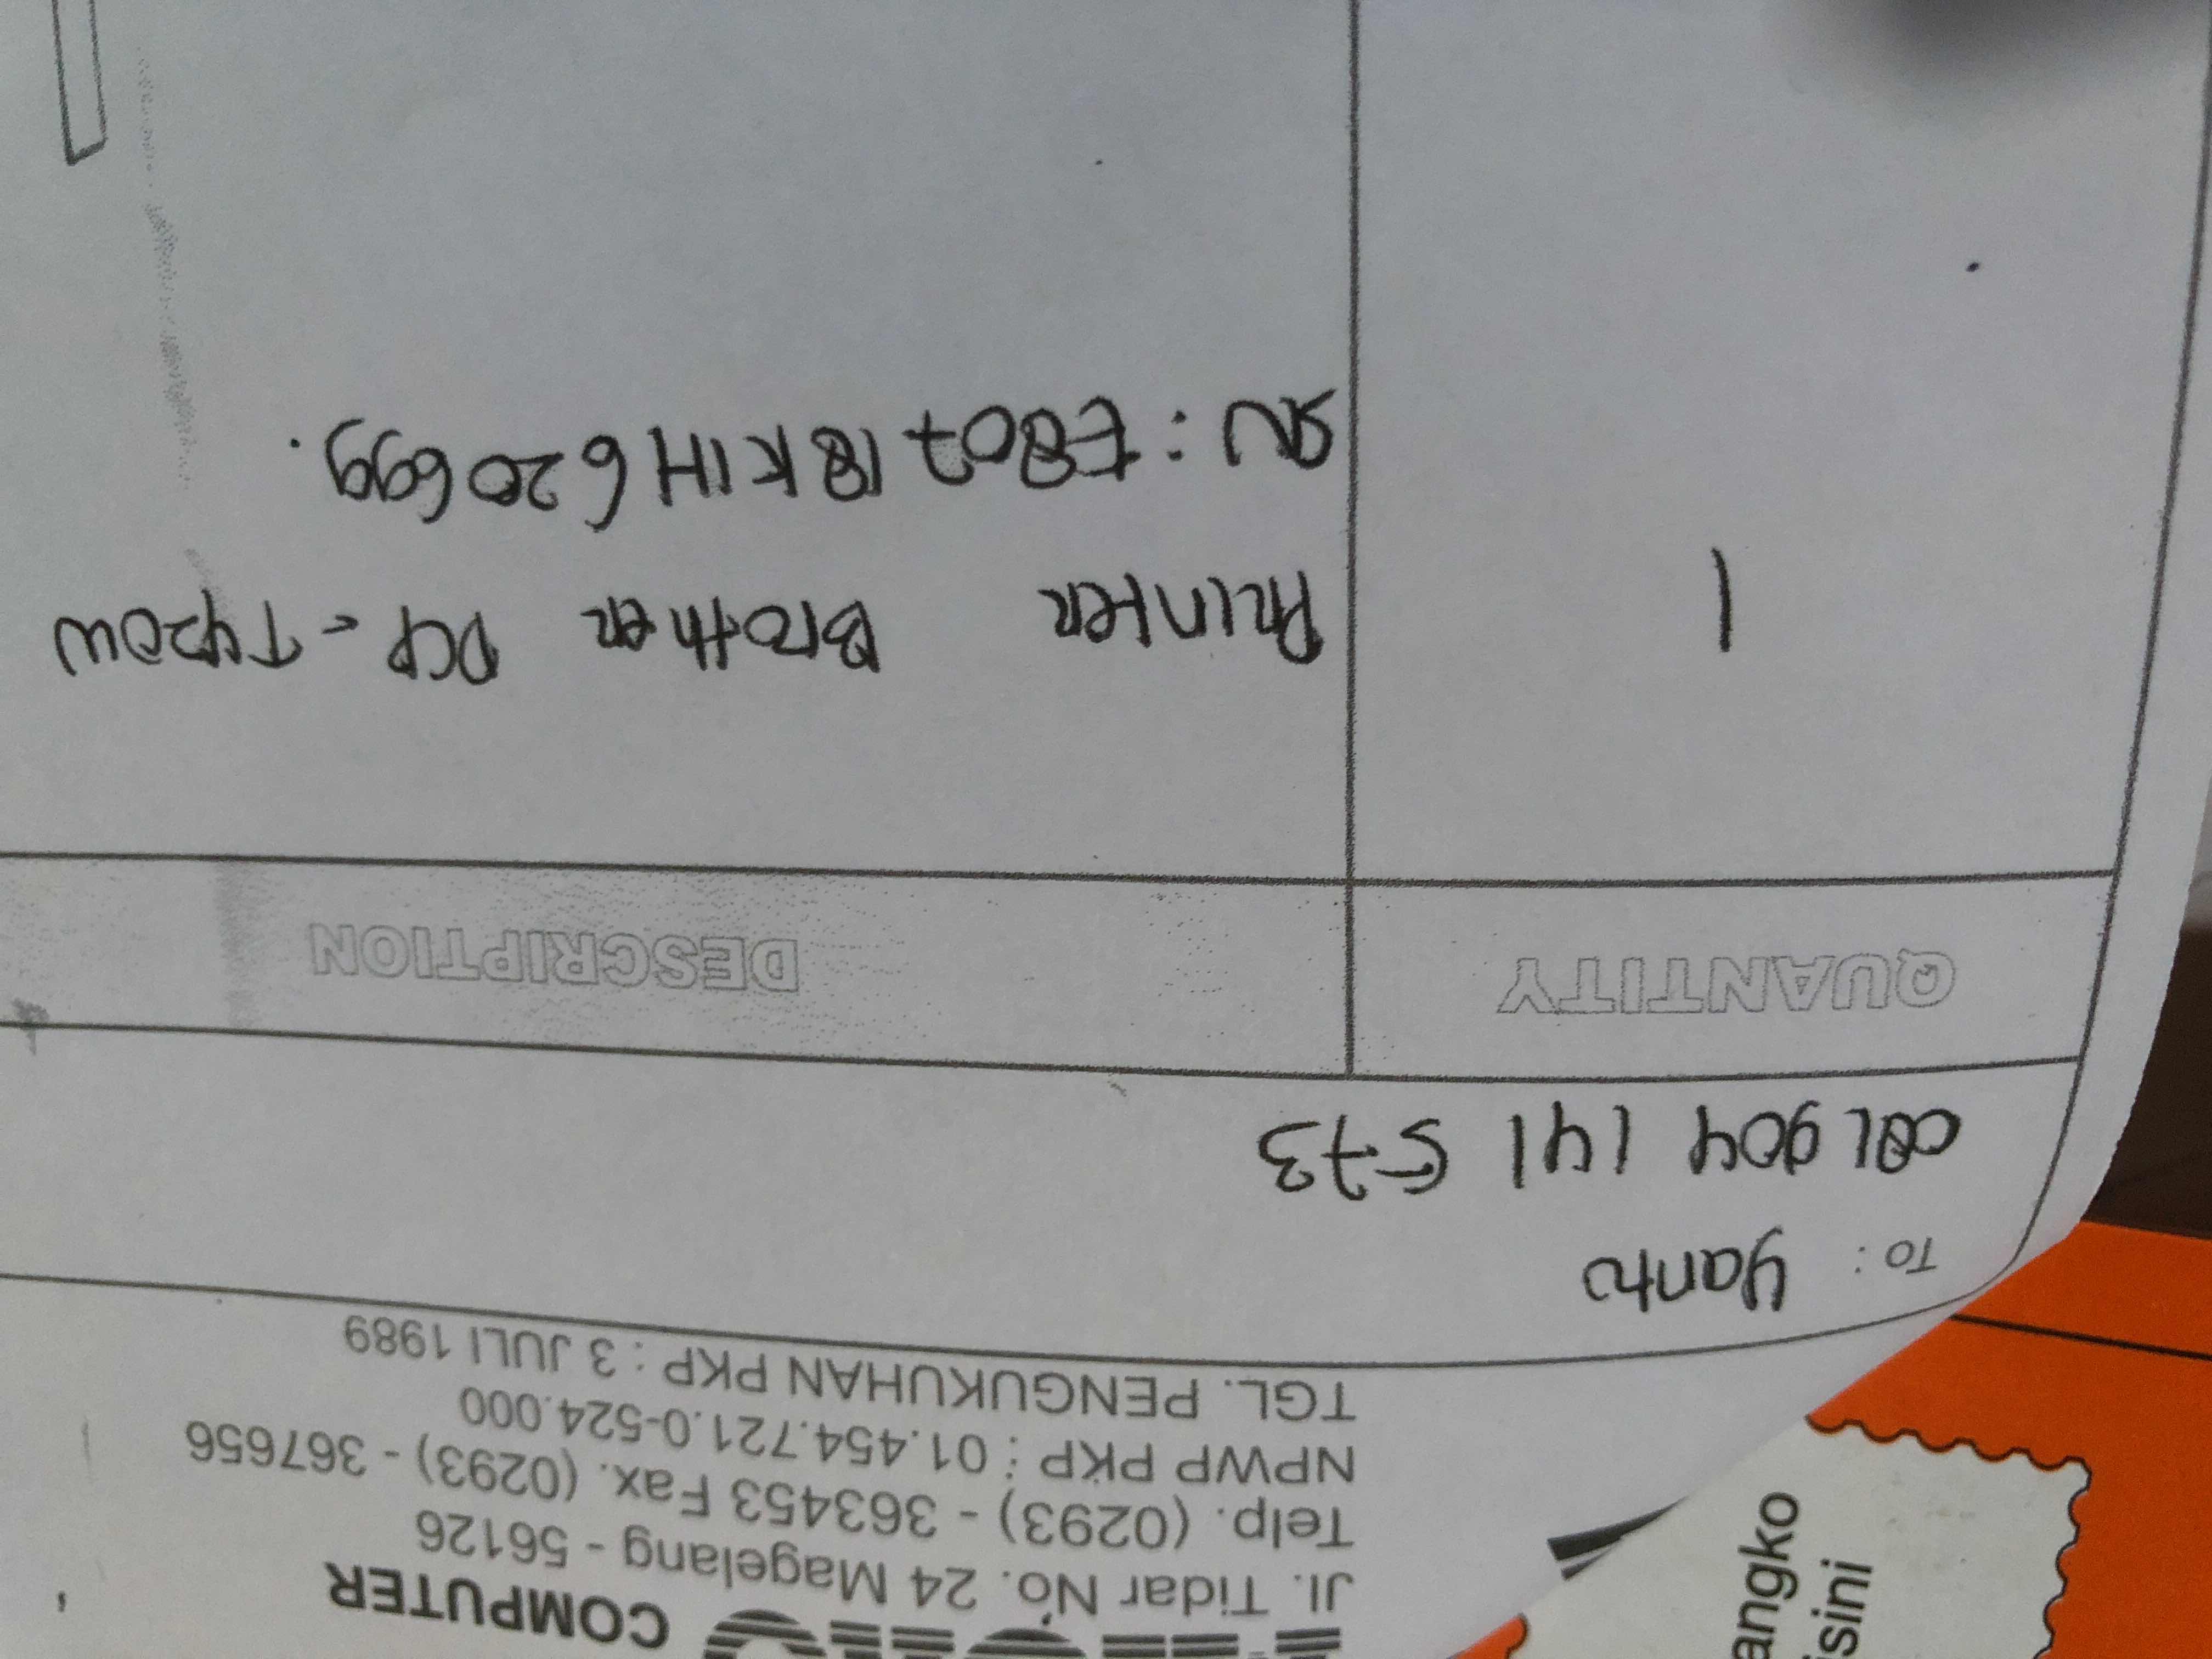 COMPUTER
Jl. Tidar No. 24 Magelang - 56126
Telp. (0293) - 363453 Fax. (0293) - 367656
NPWP PKP : 01.454.721.0-524.000
TGL. PENGUKUHAN PKP : 3 JULI 1989
TO : Yanto
081 904 141 573
QUANTITY DESCRIPTION
1 Printer Brother DCP - T420W
SN : E80718K1H620699.
angko
isini